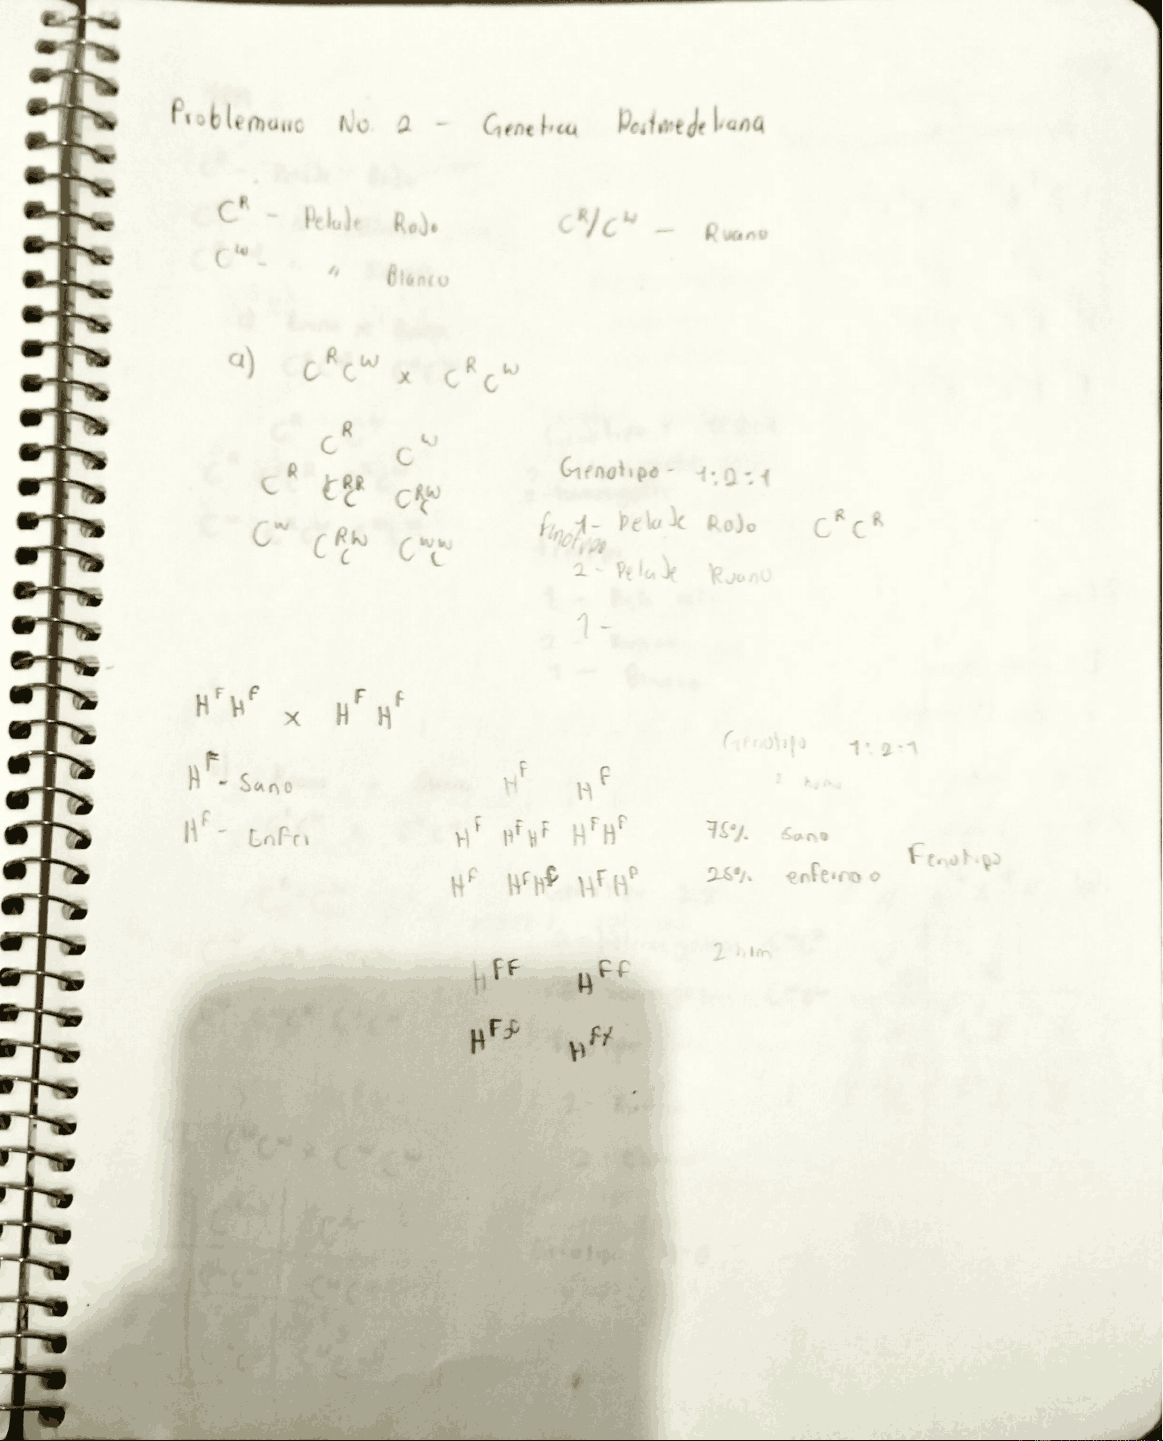 Problemario No. 2 - Genetica Postmedeliana
C^R - Pelaje Rojo C^R/C^W - Ruano
C^W - " Blanco
a) C^R C^W x C^R C^W
C^R C^W
C^R C^RR C C^RW C
C^W C^RW C C^WW C
Genotipo - 1:2:1
Finotipo 1- Pelaje Rojo C^R C^R
2 - Pelaje Ruano
1 -
H^F H^f x H^F H^f
H^F - Sano H^F H^f
H^f - Enfer
H^F H^F H^F H^F H^f
H^f H^F H^f H^f H^f
Genotipo 1:2:1
2 homo
75% sano
25% enfermo o Fenotipo
2 hom
H^FF H^Ff
H^Ff H^ff